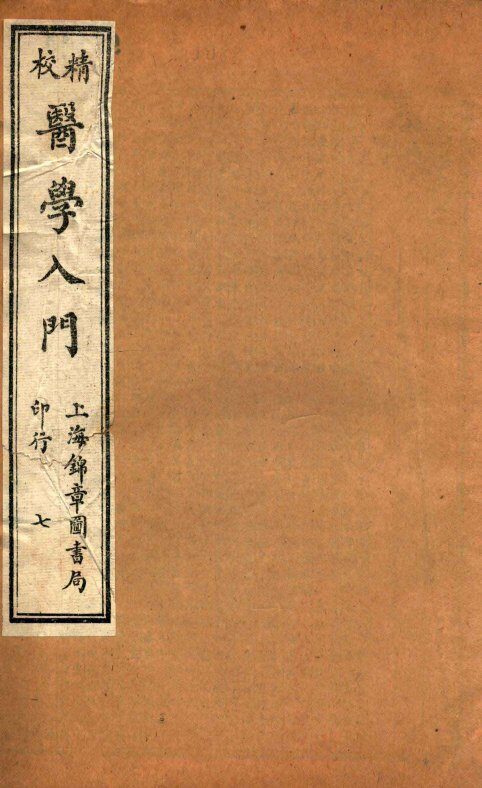 精校
醫學入門
上海錦章圖書局
印行
七